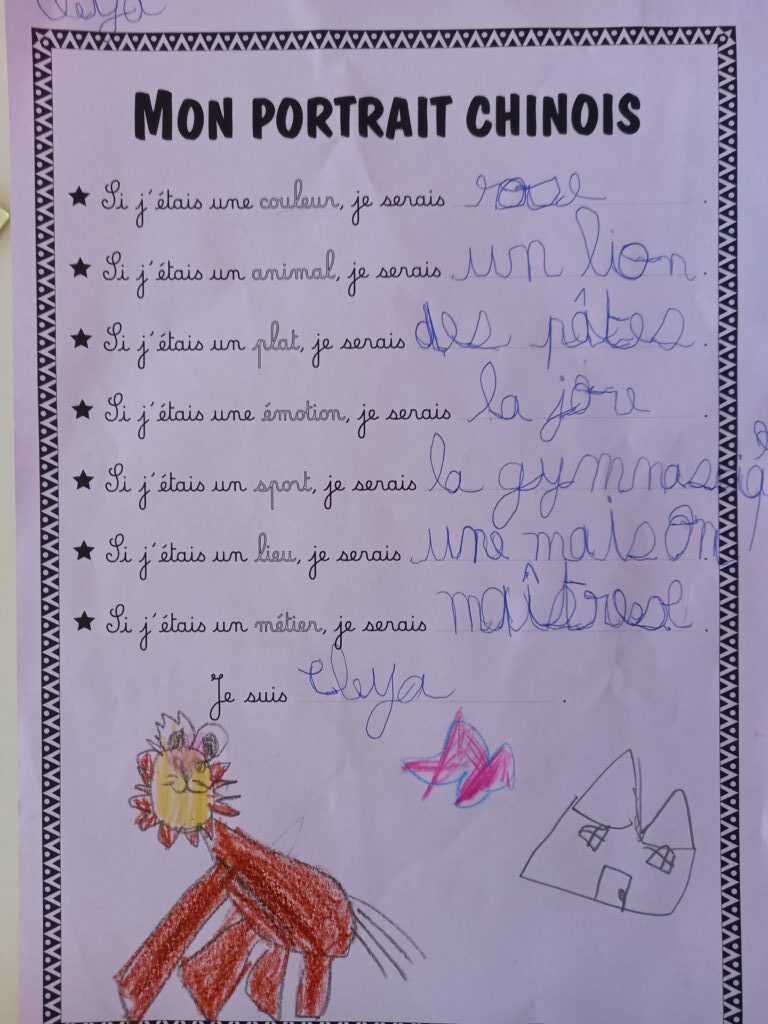 Cleya
MON PORTRAIT CHINOIS
★ Si j'étais une couleur, je serais rose.
★ Si j'étais un animal, je serais un lion.
★ Si j'étais un plat, je serais des pâtes.
★ Si j'étais une émotion, je serais la joie.
★ Si j'étais un sport, je serais la gymnastiq
★ Si j'étais un lieu, je serais une maison.
★ Si j'étais un métier, je serais maîtresse.
Je suis Cleya.